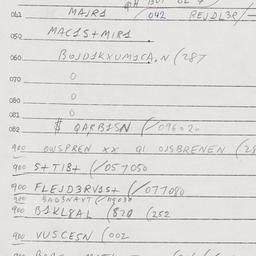 041 MAJR1 /042 REJDL3R/
050 MAC1S+MIR1.
060 BOJD1KXUM1CA.N (287
070 0
080 0
081 0
082 $ QARB1SN (/096020
900 OWSPREN XX QI OJSBRENEN (28
900 S+TIB+ (/057050
900 FLEJD3RV1S+ (/077080
900
900 B1KL8AL (820 (252
900 VUSCESN (002
900